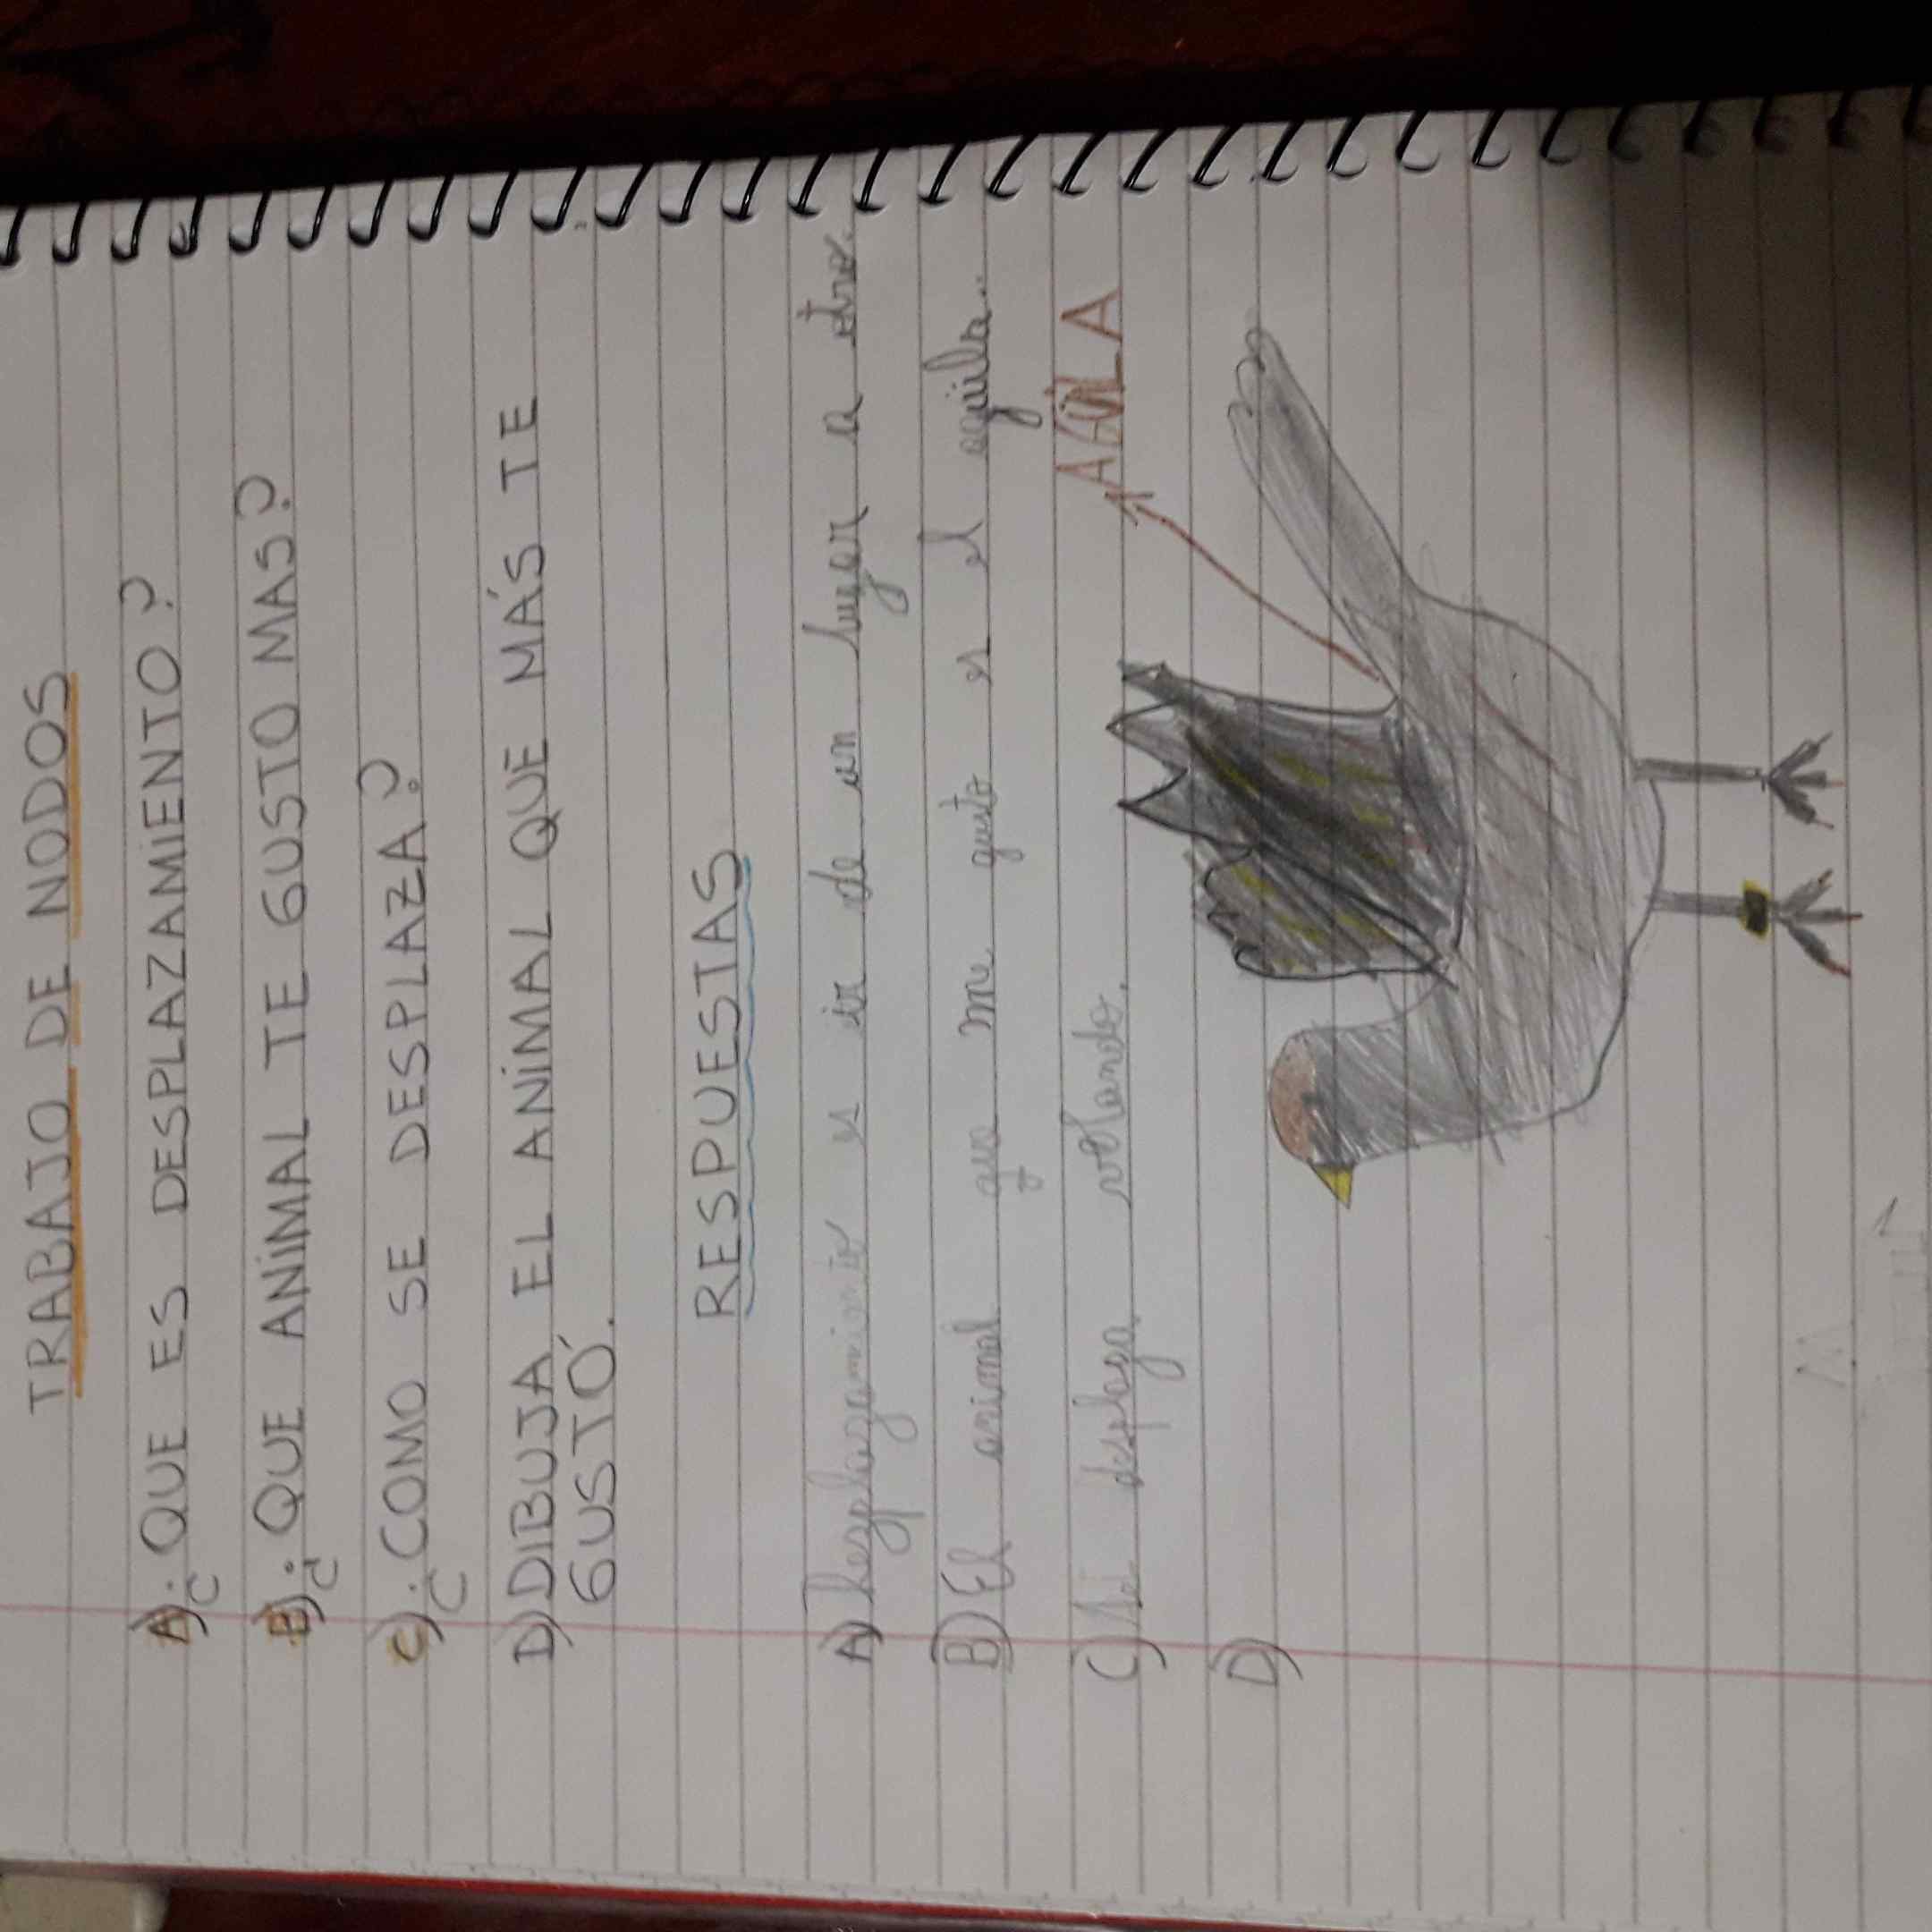 TRABAJO DE NODOS
A) ¿QUE ES DESPLAZAMIENTO?
B) ¿QUE ANIMAL TE GUSTO MAS?
C) ¿COMO SE DESPLAZA?
D) DIBUJA EL ANIMAL QUE MÁS TE
GUSTÓ.
RESPUESTAS
A) Desplazamiento es ir de un lugar a otro.
B) El animal que me gusto es el agüila..
C) Se desplaza volando.
D)
AGÜILA